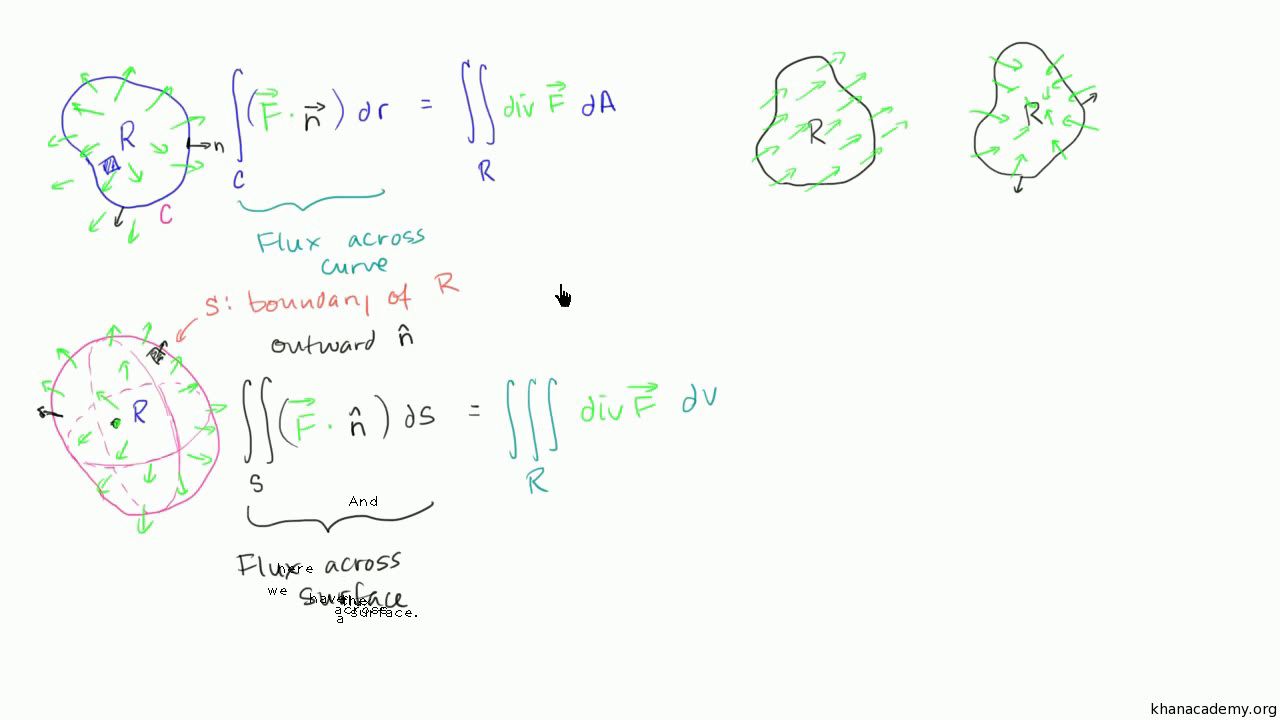 R
n
C
∫ (F⃗ · n⃗) dr = ∬ div F⃗ dA
C
R
Flux across
curve
S: boundary of R
outward n̂
R
∬ (F⃗ · n̂) dS = ∭ div F⃗ dV
S
R
And
Flux across
surface
here
we have the
across
a surface.
R
R
khanacademy.org